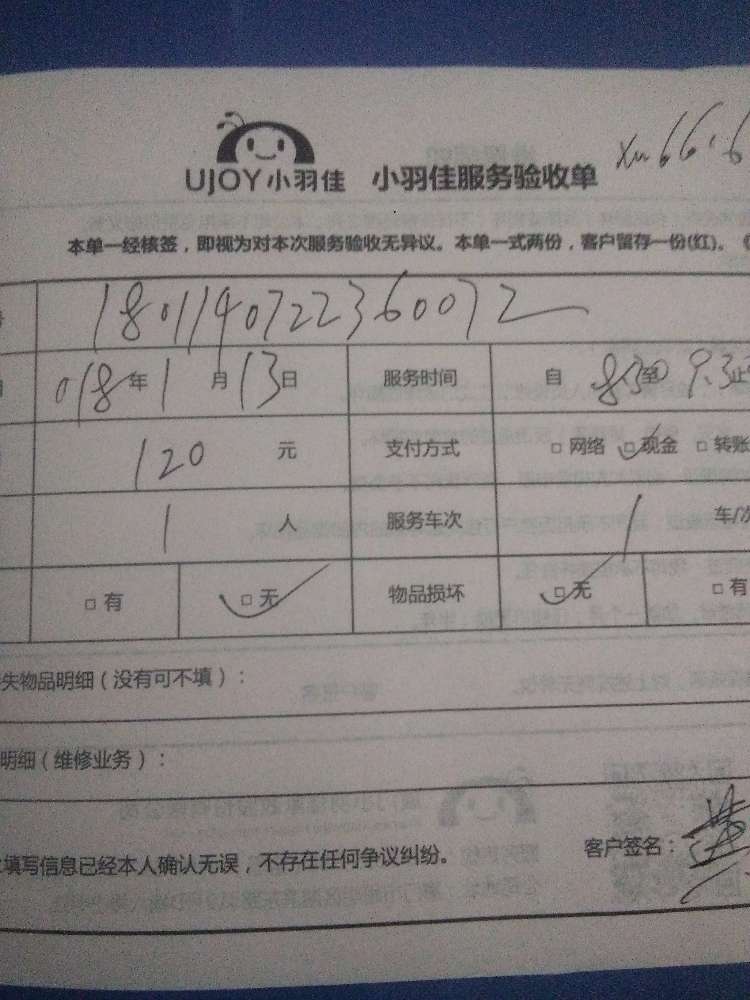 UJOY小羽佳 小羽佳服务验收单
本单一经核签，即视为对本次服务验收无异议。本单一式两份，客户留存一份(红)。
1801140722360072
018年1月13日 服务时间 自 8:30至 9.3止
120元 支付方式 □网络 □现金 □转账
1人 服务车次 1 车/次
□有 □无 物品损坏 □无 □有
失物品明细（没有可不填）：
明细（维修业务）：
填写信息已经本人确认无误，不存在任何争议纠纷。 客户签名：